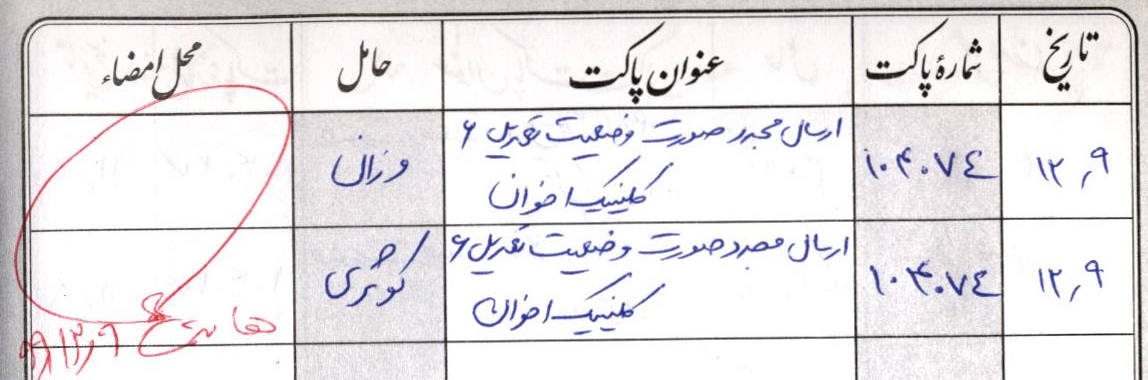 تاریخ شمارهٔ پاکت عنوان پاکت حامل محل امضاء
۱۲٫۹ ۱۰۴۰۷٤ ارسال مجدد صورت وضعیت تعدیل ۶ وزان
کلینیک اخوان
۱۲٫۹ ۱۰۴۰۷٤ ارسال مجدد صورت وضعیت تعدیل ۶ کوثری
کلینیک اخوان
۹۹٫۱۲٫۹